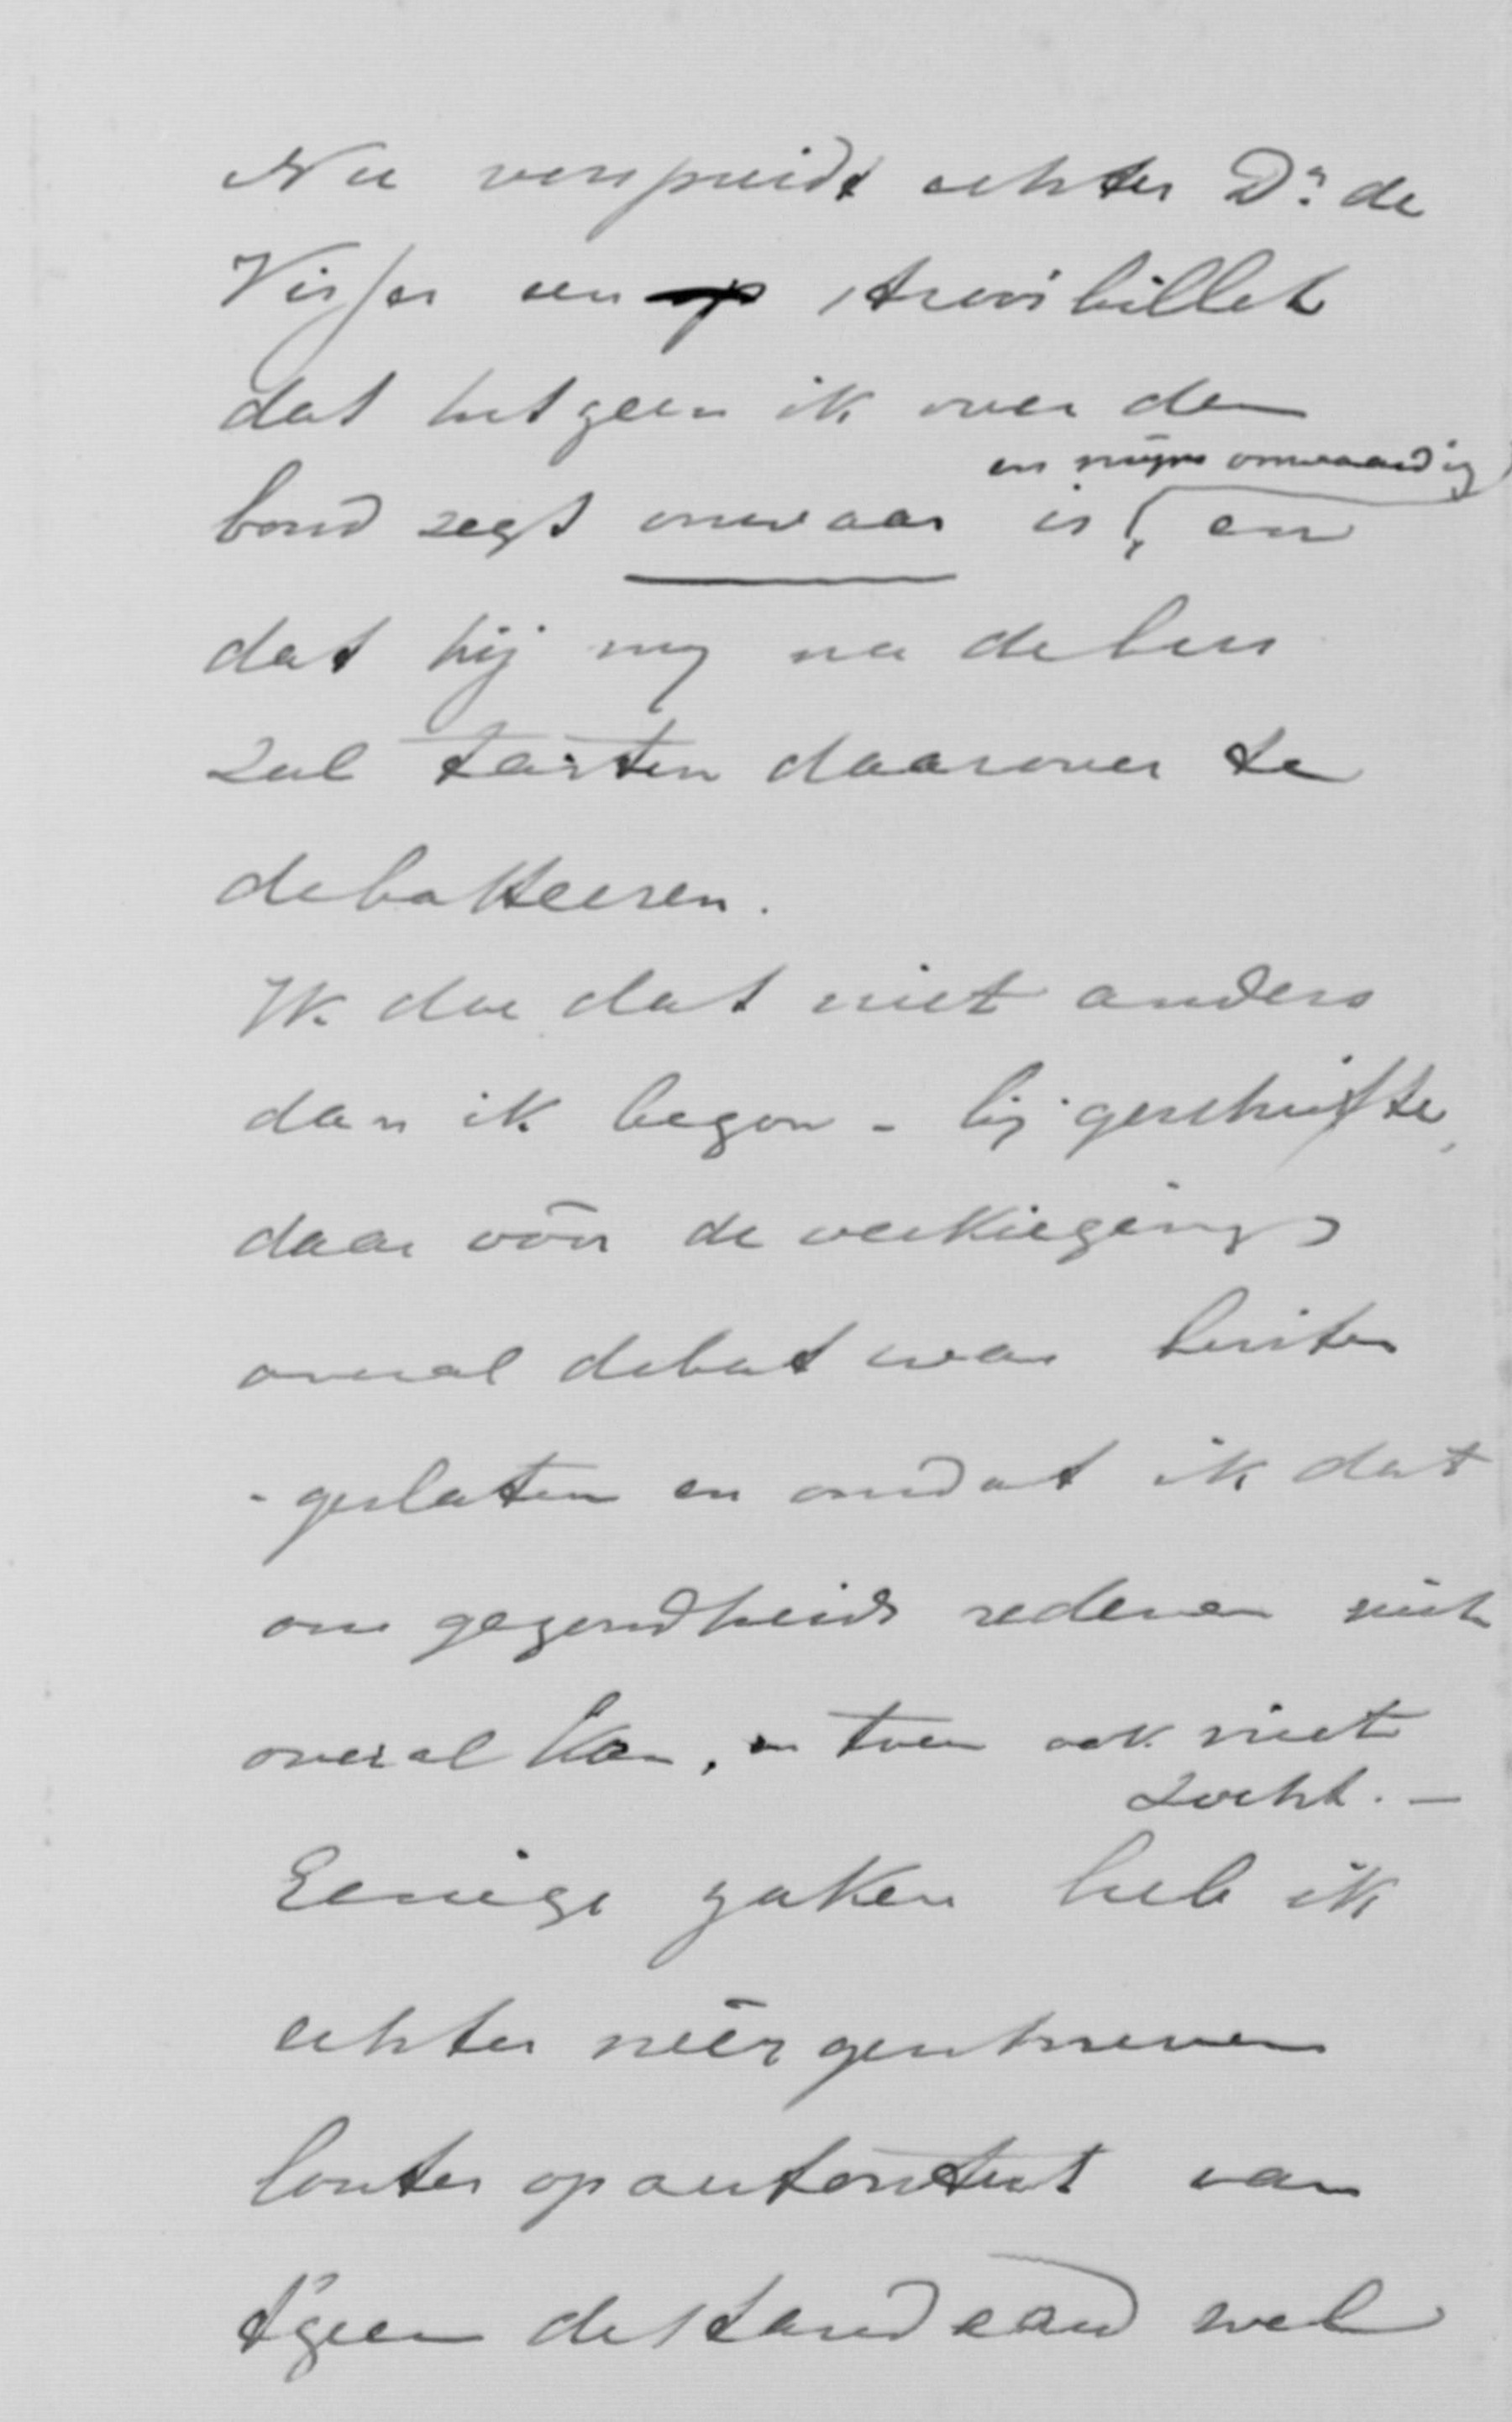 Nu verspreidt echter Dr. de
Visser een strooibillet
dat hetgeen ik over den
en mijns onwaardig
bond zegt onwaar is, en
dat hij my na dezen
zal tarten daarover te
debatteeren.
Ik doe dat niet anders
dan ik begon - bij geschrifte,
daar vóór de verkiezing
overal debat was buiten
-gesloten en omdat ik dat
om gezondheids redenen niet
overal kan, en toen ook niet
zocht. -
Eenige zaken heb ik
echter néér geschreven
louter op autoriteit van
t'geen de Standaard wel